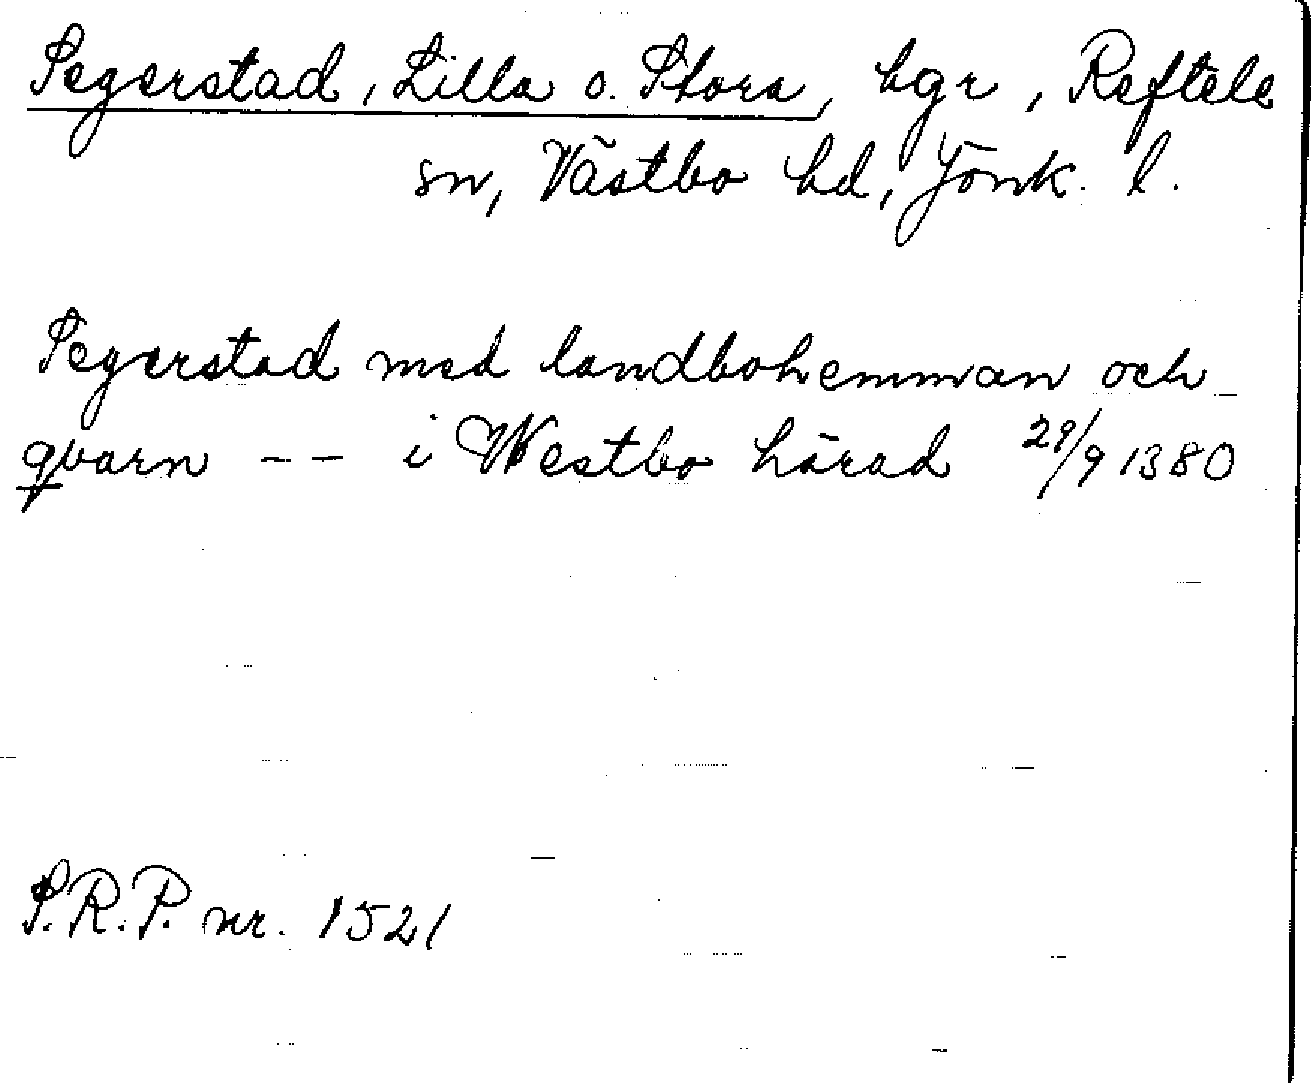 Segerstad, Lilla o. Stora, hgr, Reftele
sn, Västbo hd, Jönk. l.
Segerstad med landbohemman och
qvarn -- i Westbo härad 29/9 1380
S.R.P. nr. 1521